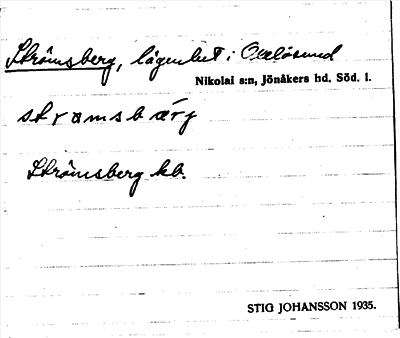 Strömsberg, lägenhet i Oxelösund
Nikolai s:n, Jönåkers hd, Söd. l.
strömsbærj
Strömsberg kb.
STIG JOHANSSON 1935.